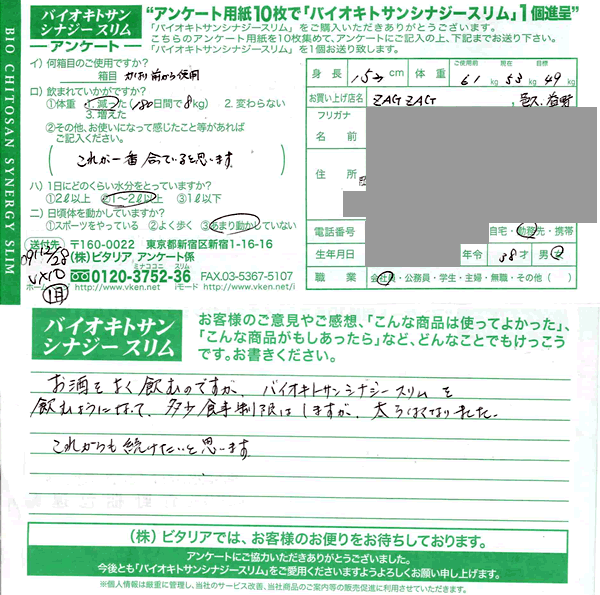 BIO CHITOSAN SYNERGY SLIM
バイオキトサン
シナジースリム
アンケート
"アンケート用紙10枚で「バイオキトサンシナジースリム」1個進呈"
「バイオキトサンシナジースリム」をご購入いただきありがとうございます。
こちらのアンケート用紙を10枚集めて、アンケートにご記入の上、下記までお送り下さい。
「バイオキトサンシナジースリム」を1個お送り致します。
イ）何箱目のご使用ですか？
箱目 かなり前から使用
ロ）飲まれていかがですか？
①体重 1.減った（180日間で8kg） 2.変わらない
3.増えた
②その他、お使いになって感じたこと等があれば
ご記入ください。
（これが一番合っていると思います）
ハ）1日にどのくらい水分をとっていますか？
①2ℓ以上 ②1〜2ℓ以上 ③1ℓ以下
ニ）日頃体を動かしていますか？
①スポーツをやっている ②よく歩く ③あまり動かしていない
送付先 〒160-0022 東京都新宿区新宿1-16-16
（株）ビタリア アンケート係
ミナコココニ スリム
0120-3752-36 FAX.03-5367-5107
ホーム http://www.vken.net/ iモード http://www.vken.net/i
身長 153cm 体重 ご使用前 61 現在 53 目標 49kg
お買い上げ店名 ZAGZAG
フリガナ
名前
住所
電話番号 自宅・勤務先・携帯
生年月日 年令 38才 男・女
職業 会社員・公務員・学生・主婦・無職・その他（ ）
バイオキトサン
シナジースリム
お客様のご意見やご感想、「こんな商品は使ってよかった」、
「こんな商品がもしあったら」など、どんなことでもけっこう
です。お書きください。
お酒をよく飲むのですが、バイオキトサンシナジースリムを
飲むようになって、多少食事制限はしますが、太らなくなりました。
これからも続けたいと思います
（株）ビタリアでは、お客様のお便りをお待ちしております。
アンケートにご協力いただきありがとうございました。
今後とも「バイオキトサンシナジースリム」をご愛用くださいますようよろしくお願い申し上げます。
※個人情報は厳重に管理し、当社のサービス改善、当社商品のご案内等の販売促進に利用されていただきます。